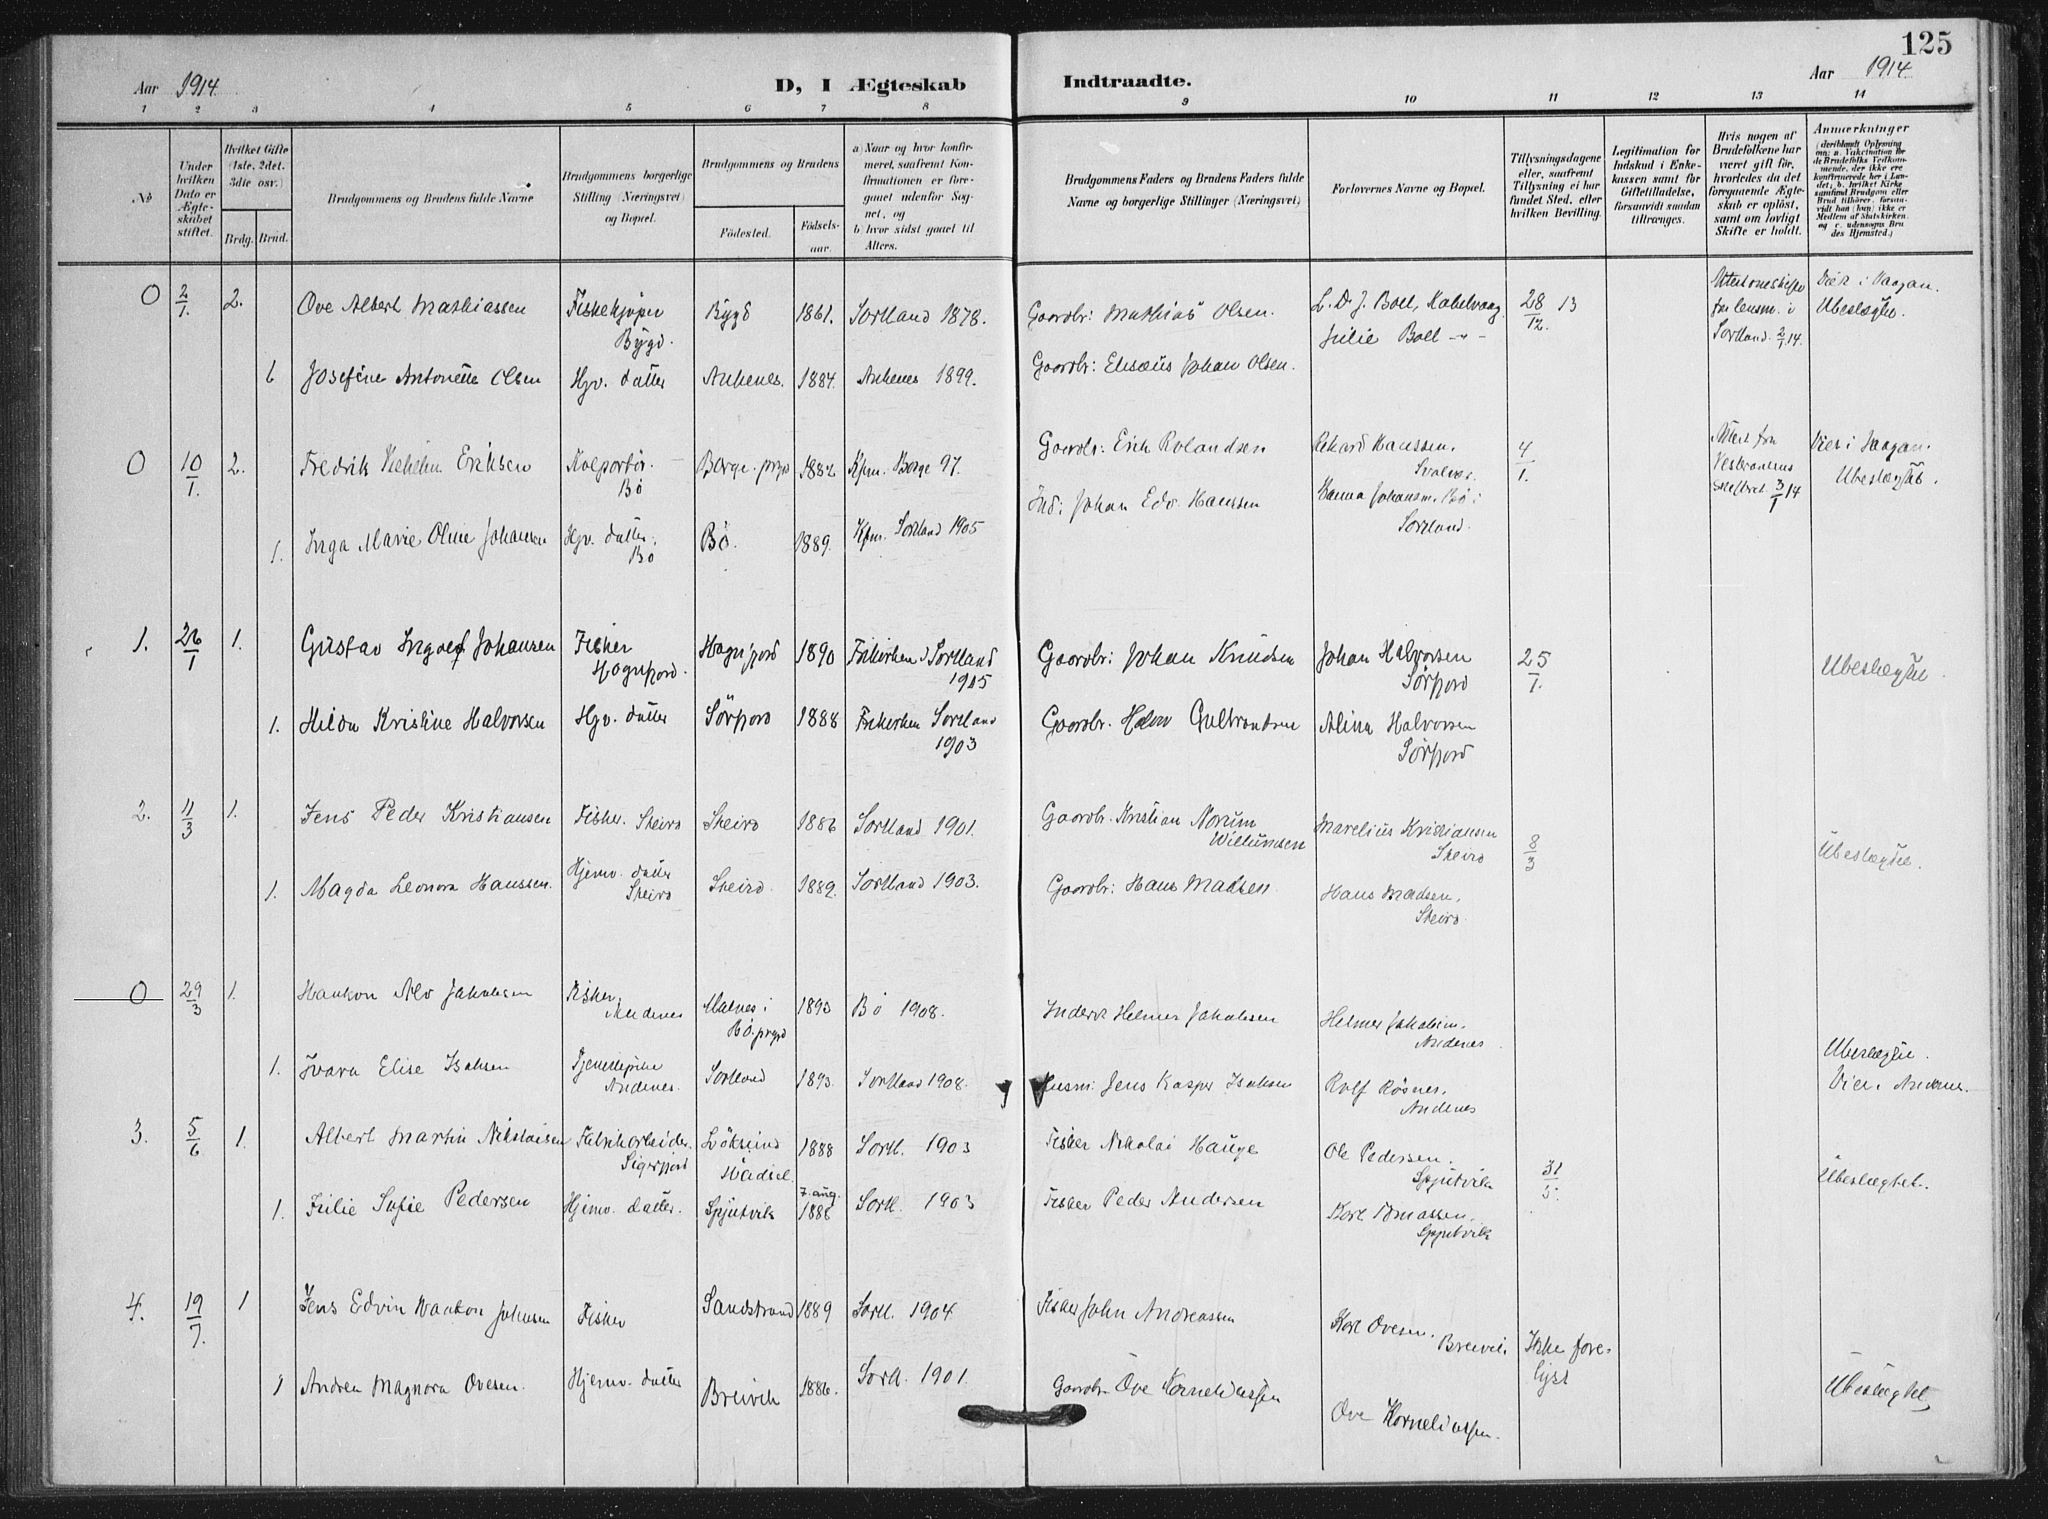 125
Aar 1914.
D, I Ægteskab Indtraadte.
Aar 1914.
1 2 3 4 5 6 7 8 9 10 11 12 13 14
No
Under hvilken Dato er Ægteskabet stiftet.
Hvilket Gifte (1ste, 2det, 3die osv.)
Brdg. Brud.
Brudgommens og Brudens fulde Navne
Brudgommens borgerlige Stilling (Næringsvei) og Bopæl.
Brudgommens og Brudens
Fødested.
Fødselsaar.
a) Naar og hvor konfirmeret, saafremt Konfirmationen er foregaaet udenfor Sognet, og
b) hvor sidst gaaet til Alters.
Brudgommens Faders og Brudens Faders fulde Navne og borgerlige Stillinger (Næringsvei)
Forlovernes Navne og Bopæl.
Tillysningsdagene eller, saafremt Tillysning ei har fundet Sted, efter hvilken Bevilling.
Legitimation for Indskud i Enkekassen samt for Giftetilladelse, forsaavidt saadan tiltrænges.
Hvis nogen af Brudefolkene har været gift før, hvorledes da det foregaaende Ægteskab er opløst, samt om lovligt Skifte er holdt.
Anmærkninger
0 2/1. 2. Ove Albert Mathiassen Fiskekjøper Bygd. Bygd 1861. Sortland 1878. Gaardbr: Mathias Olsen. L. D. J. Boll, Kabelvaag 28/12. 13 Sortland 2/1 14. Viet i Vaagan. Ubeslægtet.
Julie Boll
Josefine Antonette Olsen Hjv. datter Ankenes. 1884. Ankenes 1899. Gaardbr: Elisæus Johan Olsen.
0 10/1. 2. Fredrik Vilhelm Eriksen Kolportør. Bø Borge prgd Kfm. Borge 97. Gaardbr: Erik Rolandsen Rikard Hanssen. Svolvær. 4/1. 3/1 14 Viet i Vaagan. Ubeslægtet.
1. Inga Marie Oline Johansen Hjv. datter. Bø Bø. 1889. Kfm. Sortland 1905 Ind: Johan Edv. Hanssen Hanna Johansen. Bø i Sortland.
1. 26/1 1. Gustav Ingolf Johansen Fisker Hognfjord. Hognfjord 1890 Frikirken i Sortland Gaardbr: Johan Knudsen Johan Halvorsen Sørfjord 25/1. Ubeslægtet.
1. Hilda Kristine Halvorsen Hjv. datter Sørfjord 1888 Frikirken Sortland 1903 Gaardbr. Halvor Gulbrandsen Alina Halvorsen Sørfjord
2. 11/3 1. Jens Peder Kristiansen Fisker. Skeiro Skeiro 1886 Sortland 1901. Gaardbr. Kristian Norum Willumsen Marelius Kristiansen Skeiro 8/3 Ubeslægtet.
1. Magda Leonora Hanssen. Hjemv. datter Skeiro Skeiro. 1889. Sortland 1903. Gaardbr: Hans Madsen. Hans Madsen. Skeiro.
0 29/3 1. Haakon Alv Jakobsen Fisker, Andenes Malnes i Bø prgd 1893 Bø 1908. Inderst Helmer Jakobsen Helmer Jakobsen. Andenes
1. Svara Elise Isaksen Tjenestepike Andenes. Sortland 1893. Sortland 1908. Husm: Jens Kasper Isaksen Rolf Røsnes. Andenes Ubeslægtet. Viet i Andenes.
3. 5/6 1. Albert Martin Nikolaisen Fabrikarbeider. Sigerfjord Hadsel. 1888 Sortl. 1903 Fisker Nikolai Hauge Ole Pedersen. Spjutvik 31/5. Ubeslægtet.
1. Julie Sofie Pedersen Hjemv. datter. Spjutvik 7. aug. 1886 Sortl. 1903 Fisker Peder Andersen Karl Tomassen. Spjutvik
4. 19/7. 1 Jens Edvin Haakon Johnsen Fisker Sandstrand 1889 Sortl. 1904 Fisker John Andreassen Karl Ovesen. Breivik Ikke forelyst
1 Andrea Magnora Ovesen. Hjemv. datter Breivik 1886. Sortl. 1901. Gaardbr. Ove Korneliussen Ove Korneliussen. Ubeslægtet